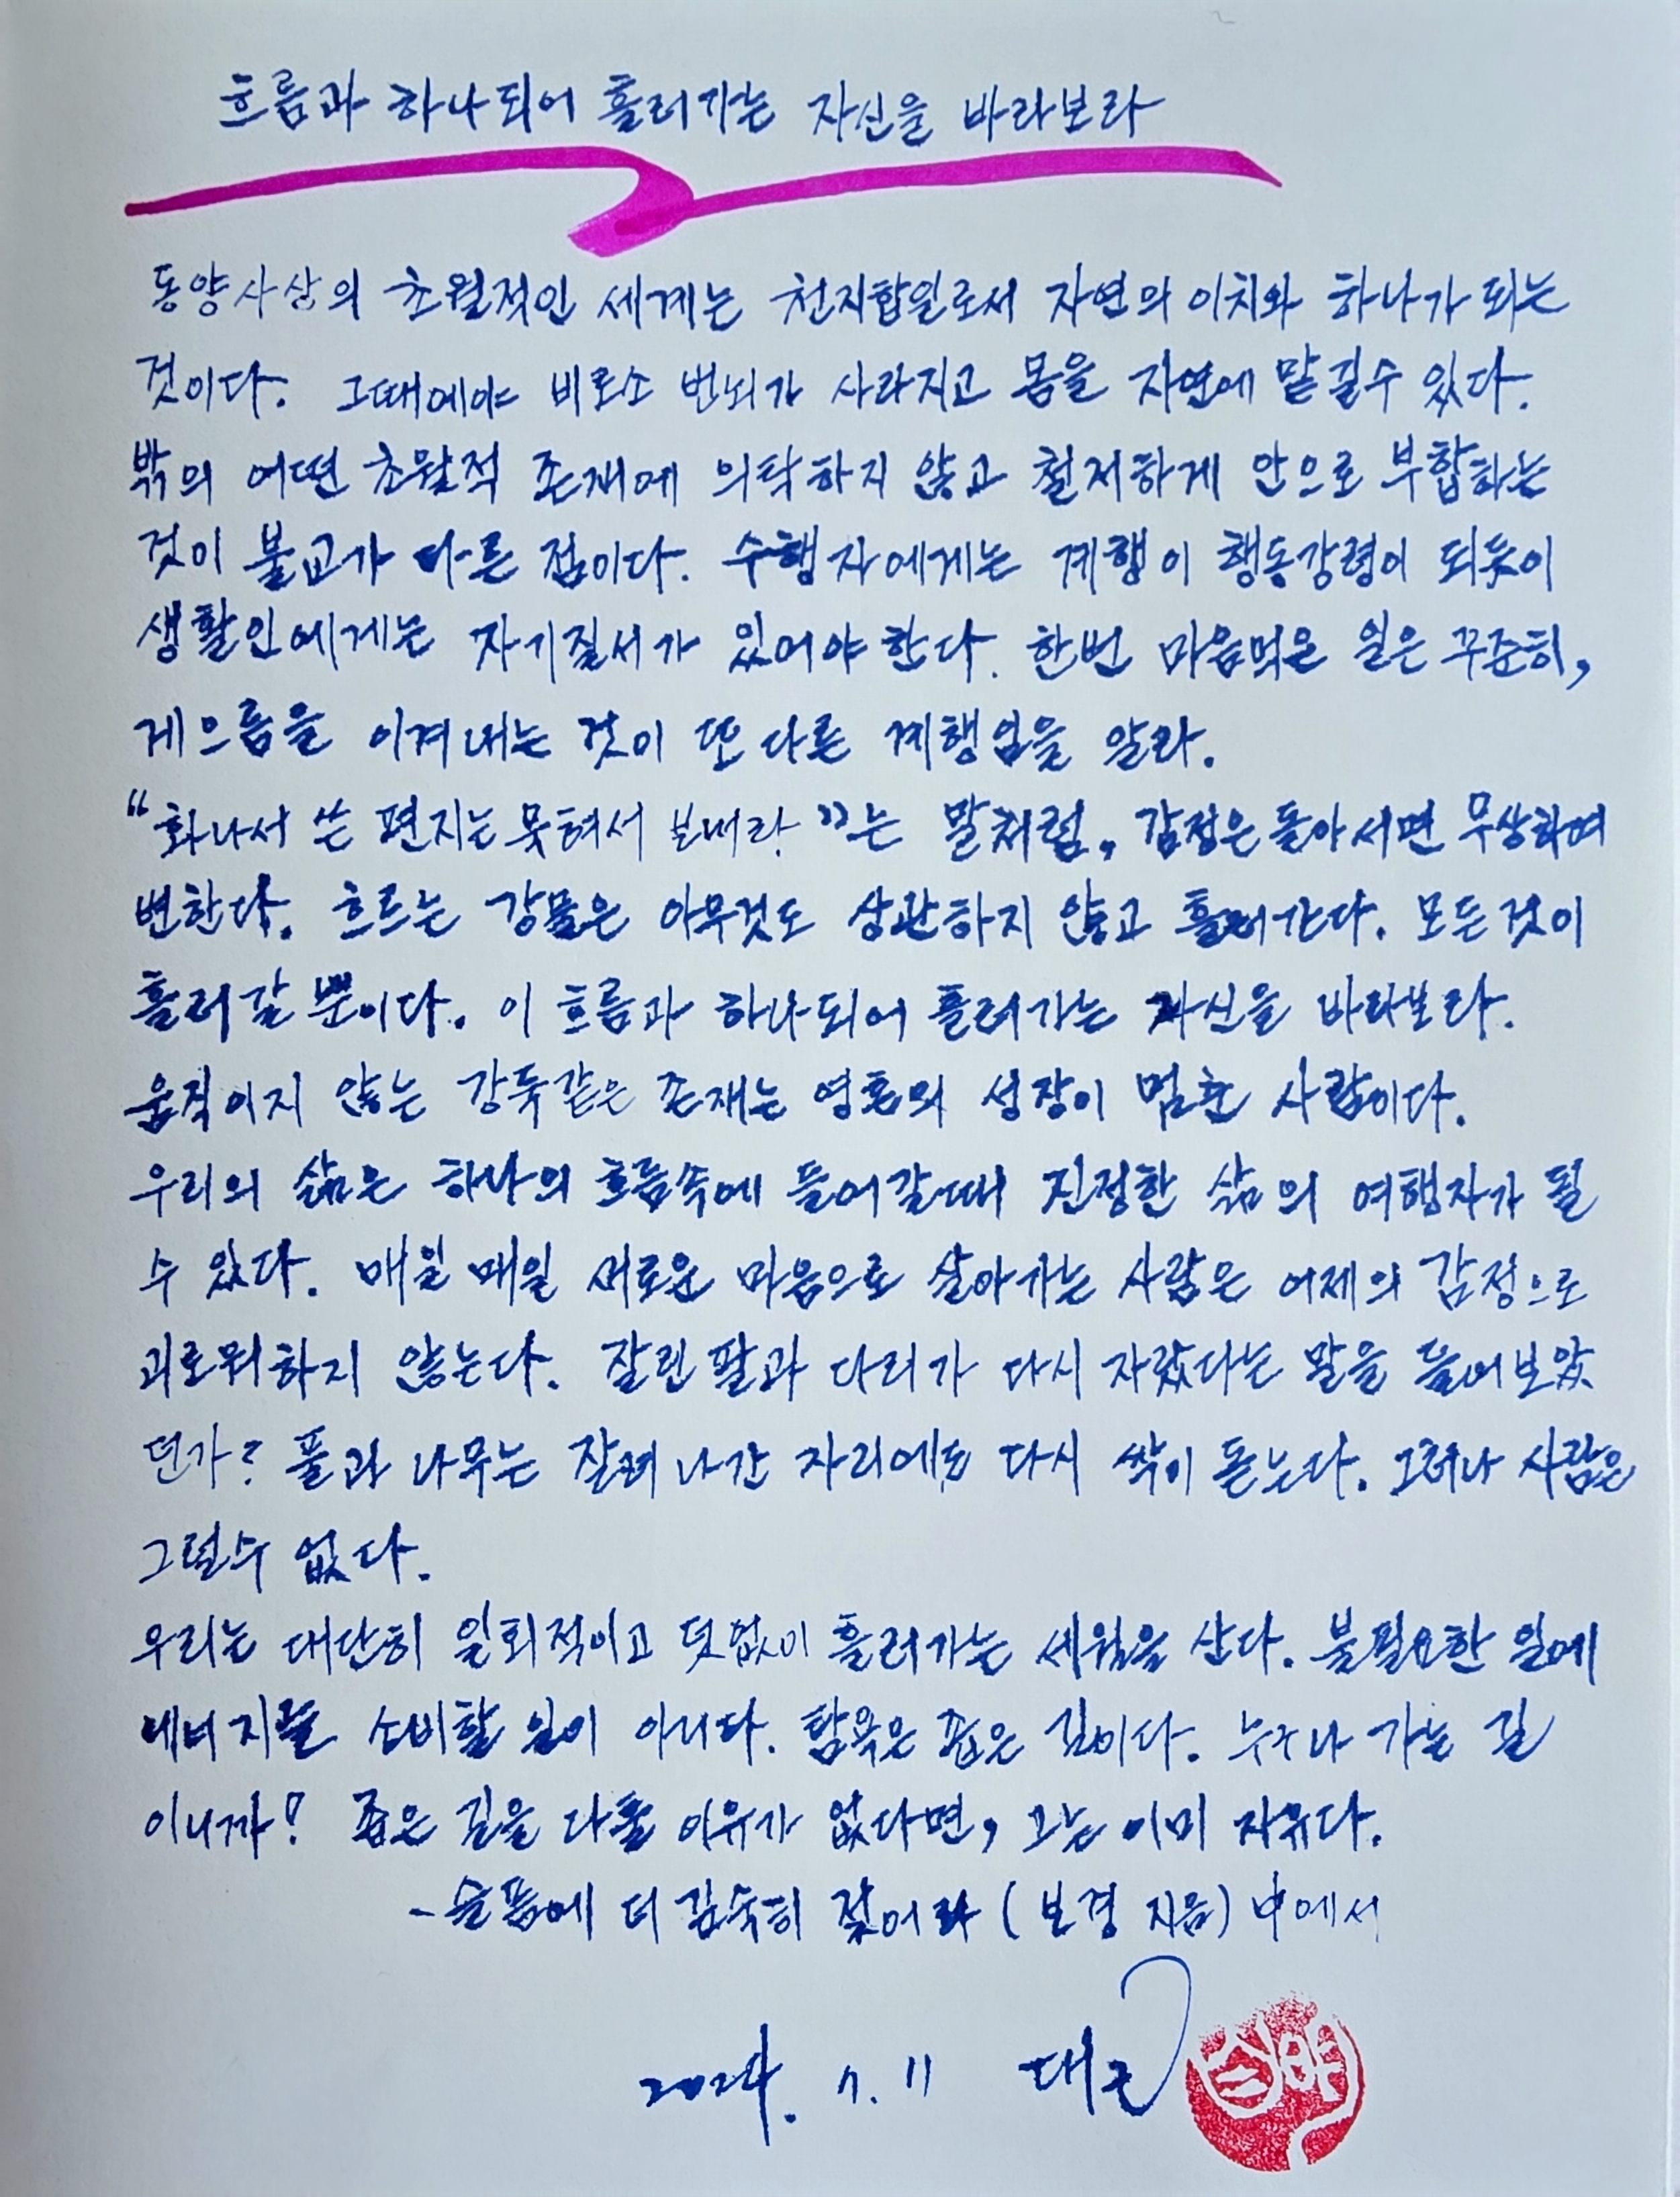 흐름과 하나되어 흘러가는 자신을 바라보라
동양사상의 초월적인 세계는 천지합일로서 자연의 이치와 하나가 되는
것이다. 그때에야 비로소 번뇌가 사라지고 몸을 자연에 맡길수 있다.
밖의 어떤 초월적 존재에 의탁하지 않고 철저하게 안으로 부합하는
것이 불교가 다른 점이다. 수행자에게는 계행이 행동강령이 되듯이
생활인에게는 자기질서가 있어야 한다. 한번 마음먹은 일은 꾸준히,
게으름을 이겨내는 것이 또 다른 계행임을 알라.
"화나서 쓴 편지는 묵혀서 보내라."는 말처럼, 감정은 돌아서면 무상하며
변한다. 흐르는 강물은 아무것도 상관하지 않고 흘러간다. 모든것이
흘러갈 뿐이다. 이 흐름과 하나되어 흘러가는 자신을 바라보라.
움직이지 않는 강둑같은 존재는 영혼의 성장이 멈춘 사람이다.
우리의 삶은 하나의 흐름속에 들어갈때 진정한 삶의 여행자가 될
수 있다. 매일 매일 새로운 마음으로 살아가는 사람은 어제의 감정으로
괴로워하지 않는다. 잘린 팔과 다리가 다시 자랐다는 말을 들어보았
던가? 풀과 나무는 잘려 나간 자리에도 다시 싹이 돋는다. 그러나 사람은
그럴수 없다.
우리는 대단히 일회적이고 덧없이 흘러가는 세월을 산다. 불필요한 일에
에너지를 소비할 일이 아니다. 탐욕은 좁은 길이다. 누구나 가는 길
이니까! 좁은 길을 다툴 이유가 없다면, 그는 이미 자유다.
- 슬픔에 더 깊숙히 젖어라 (보경 지음) 中에서
2024. 7. 11 대근